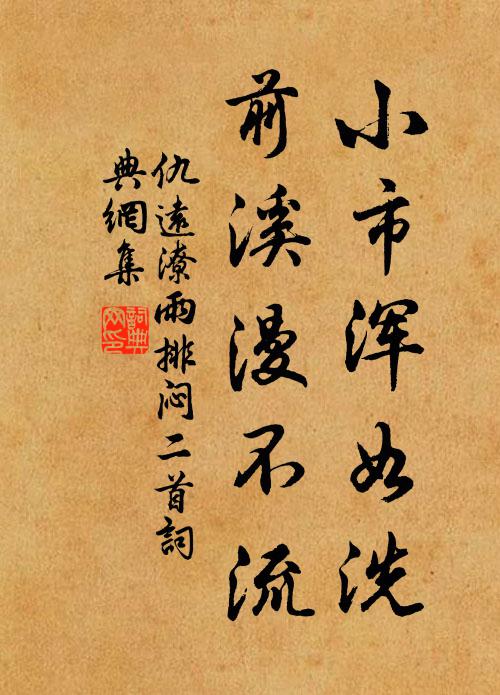 小市浑如洗
前溪漫不流
仇遠潦雨排闷二首詞
典網集
詞典网印